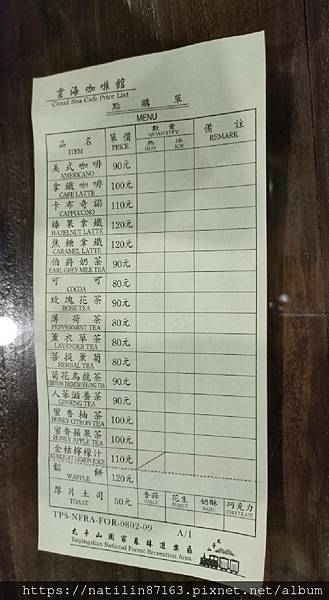 雲海咖啡館
Cloud Sea Cafe Price List
點購單
MENU
品名 單價 數量 備註
ITEM PRICE QUANTITY REMARK
熱 冰
HOT ICE
美式咖啡 90元
AMERICANO
拿鐵咖啡 100元
CAFE LATTE
卡布奇諾 110元
CAPPUCCINO
榛果拿鐵 120元
HAZELNUT LATTE
焦糖拿鐵 120元
CARAMEL LATTE
伯爵奶茶 90元
EARL GREY MILK TEA
可可 80元
COCOA
玫瑰花茶 90元
ROSE TEA
薄荷茶 80元
PEPPERMINT TEA
薰衣草茶 80元
LAVENDER TEA
菩提薰菊 80元
HERBAL TEA
菊花烏龍茶 90元
人蔘滋養茶 90元
GINSENG TEA
蜜香柚茶 100元
HONEY CITRON TEA
蜜香蘋果茶 100元
HONEY APPLE TEA
金桔檸檬汁 110元
KUMQUAT LEMON JUICE
鬆餅 120元
WAFFLE
厚片土司 50元 香蒜 花生 奶酥 巧克力
TOAST GARLIC PEANUT CHOCOLATE
TPS-NFRA-FOR-0802-09 A/1
太平山國家森林遊樂區
Taipingshan National Forest Recreation Area
https://natilin87163.pixnet.net/album